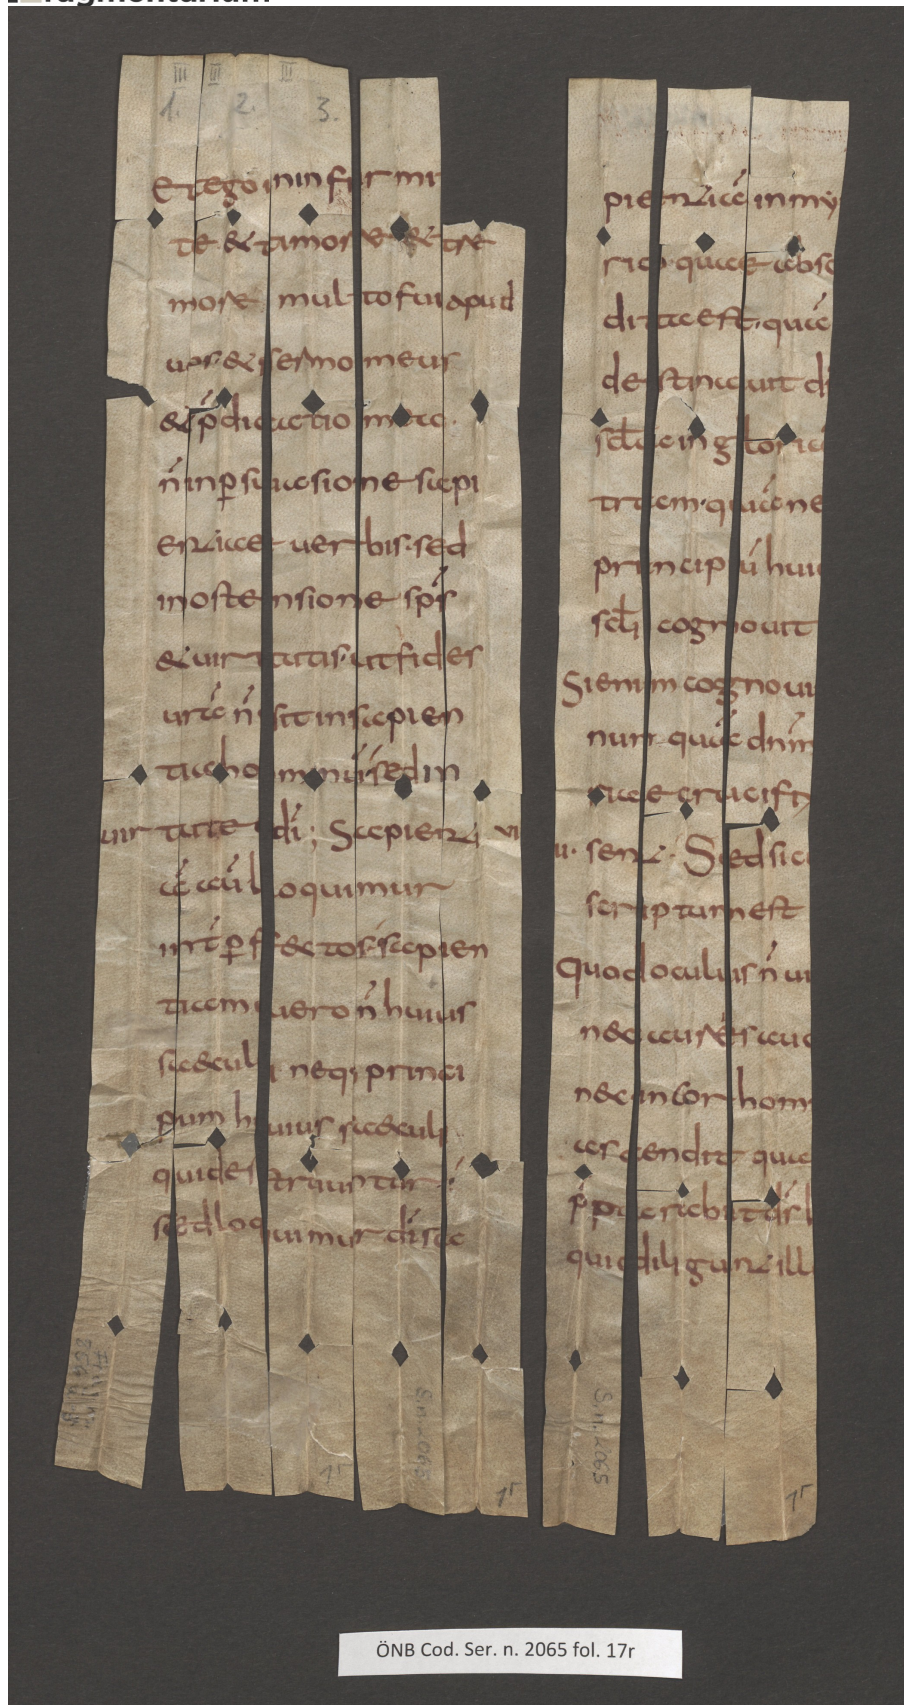 Et ego in infirmi
te & timore & tre
more multo fui apud
uos· & sermo meus
& p̄dicatio mea·
n̄ in ꝑsuasione sapi
entiae uerbis· sed
in ostensione sp̄s
& uirtutis· ut fides
urā n̄ sit in sapien
tia hominū· sed in
uirtute di; Sapienti VI
ā aū loquimur
int̄ ꝑfectos· sapien
tiam uero n̄ huius
saeculi neq; princi
pum huius saeculi
qui destruuntur·
sed loquimur di sa
pientiā in my
rio· quae absc
dita est· quā
destinauit di
scl̄a in gloriā
tram· quā ne
principū huiu
scl̄i cognouit
Si enim cognoui
num quā dn̄m
iae crucifi
u· sent· Sed sic
scriptum est
Quod oculus n̄ ui
nec auris au
nec in cor hom
ascendit quae
p̄parauit ds
qui diligunt ill
ÖNB Cod. Ser. n. 2065 fol. 17r
III
III
III
1.
2.
3.
S.n. 2065
S.n. 2065
1r
1r
1r